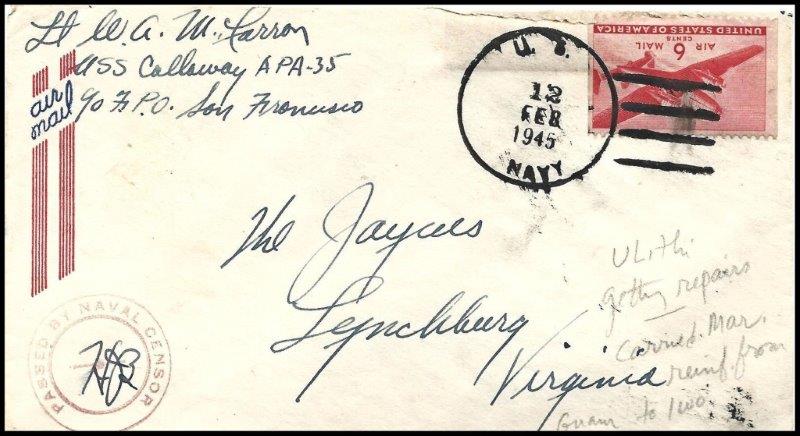 Lt W. A. McCarron
USS Callaway APA-35
c/o F.P.O. San Francisco
air
mail
U. S.
12
FEB
1945
NAVY
UNITED STATES OF AMERICA
6
CENTS
AIR MAIL
The Jaycees
Lynchburg
Virginia
Ulithi
getting repairs
carried Mar.
reinf. from
Guam to Iwo
PASSED BY NAVAL CENSOR